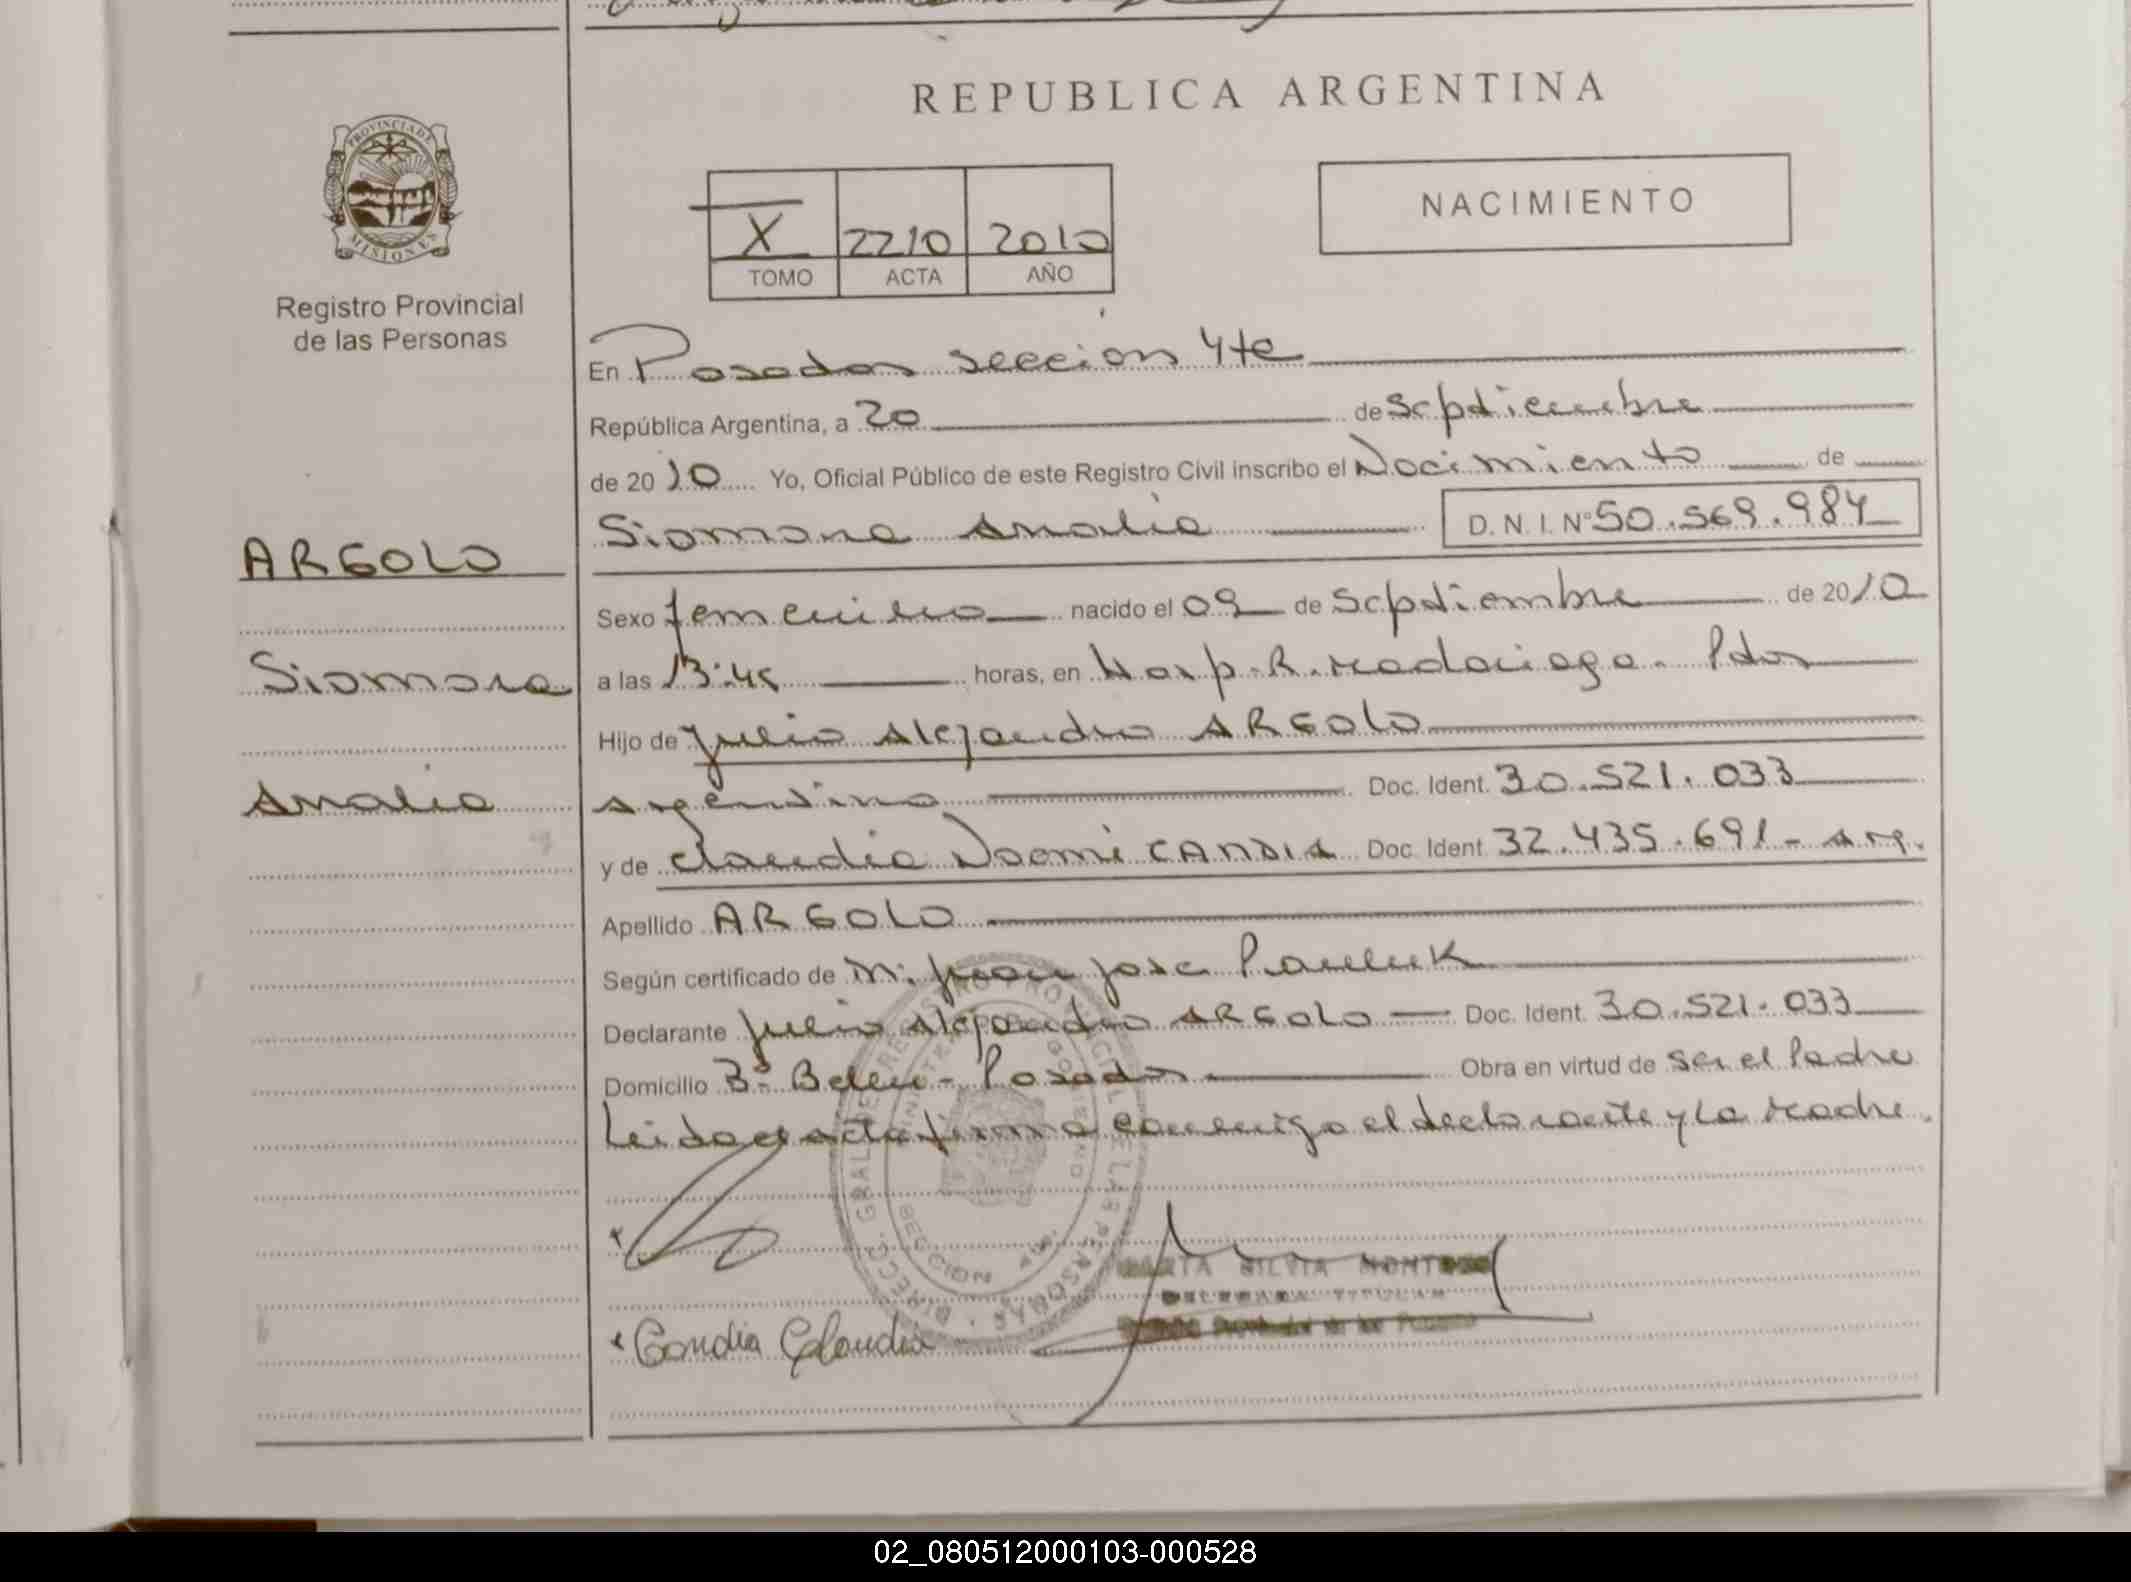 REPUBLICA ARGENTINA
PROVINCIA DE
MISIONES
Registro Provincial
de las Personas
NACIMIENTO
X 2210 2010
TOMO ACTA AÑO
En Posadas seccion 4ta
República Argentina, a 20 de Septiembre
de 2010 Yo, Oficial Público de este Registro Civil inscribo el Nacimiento de
Siomara Analia D. N. I. Nº 50.569.984
ARGOLO
Siomara
Analia
Sexo femenino nacido el 09 de Septiembre de 2010
a las 13:45 horas, en Hosp. R. Madariaga. Pdas
Hijo de Julio Alejandro ARGOLO
Argentino Doc. Ident. 30.521.033
y de Claudia Noemi CANDIA Doc. Ident. 32.435.691 - Arg.
Apellido ARGOLO
Según certificado de M. Juan Jose Pauluk
Declarante Julio Alejandro ARGOLO Doc. Ident. 30.521.033
Domicilio Bº Belen - Posadas Obra en virtud de ser el Padre
Leida el acta firma conmigo el declarante y la Madre.
MARTA SILVIA
Candia Claudia
02_080512000103-000528